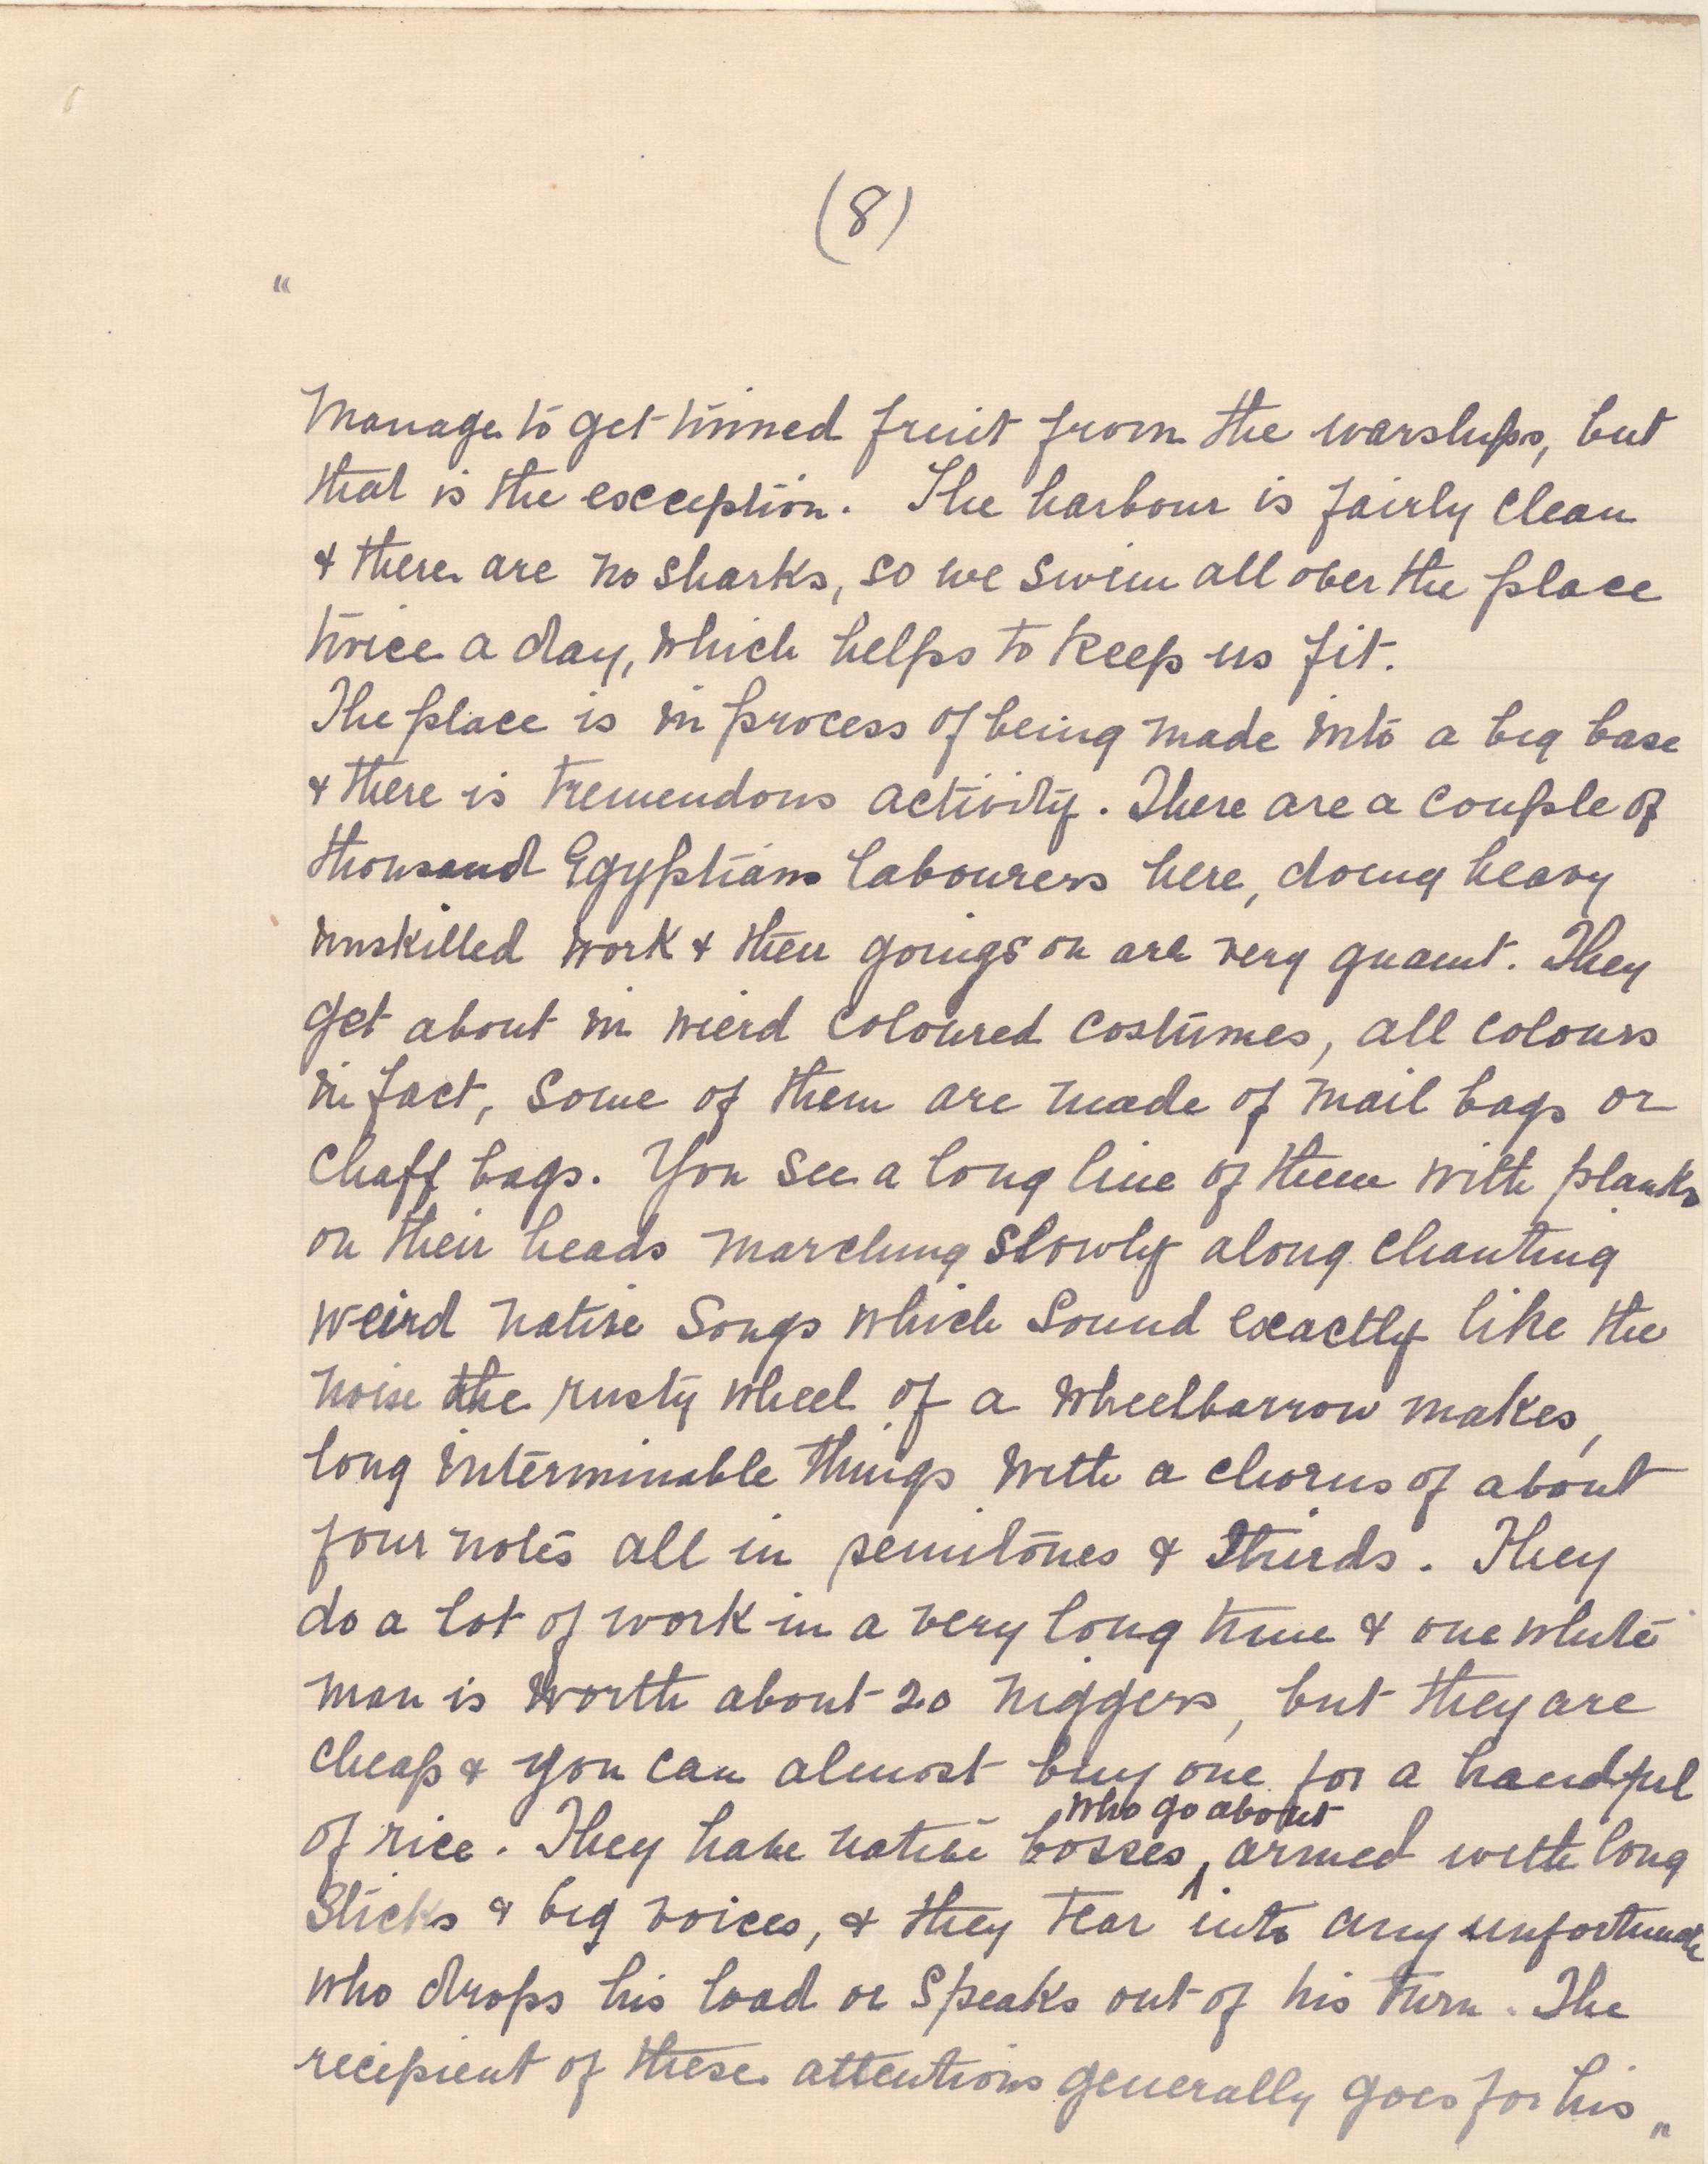 (8)
"
manage to get tinned fruit from the warships, but
that is the exception. The harbour is fairly clean
& there are no sharks, so we swim all over the place
twice a day, which helps to keep us fit.
The place is in process of being made into a big base
& there is tremendous activity. There are a couple of
thousand Egyptians labourers here, doing heavy
unskilled work & their goings on are very quaint. They
get about in wierd coloured costumes, all colours
in fact, some of them are made of mail bags or
chaff bags. You see a long line of them with planks
on their heads marching slowly along chanting
weird native songs which sound exactly like the
noise the rusty wheel of a wheelbarrow makes,
long interminable things with a chorus of about
four notes all in semitones & thirds. They
do a lot of work in a very long time & one white
man is worth about 20 niggers, but they are
cheap & you can almost buy one for a handful
who go about
of rice. They have native bosses, armed with long
sticks & big voices, & they tear into any unfortunate
who drops his load or speaks out of his turn. The
recipient of these attentions generally goes for his "